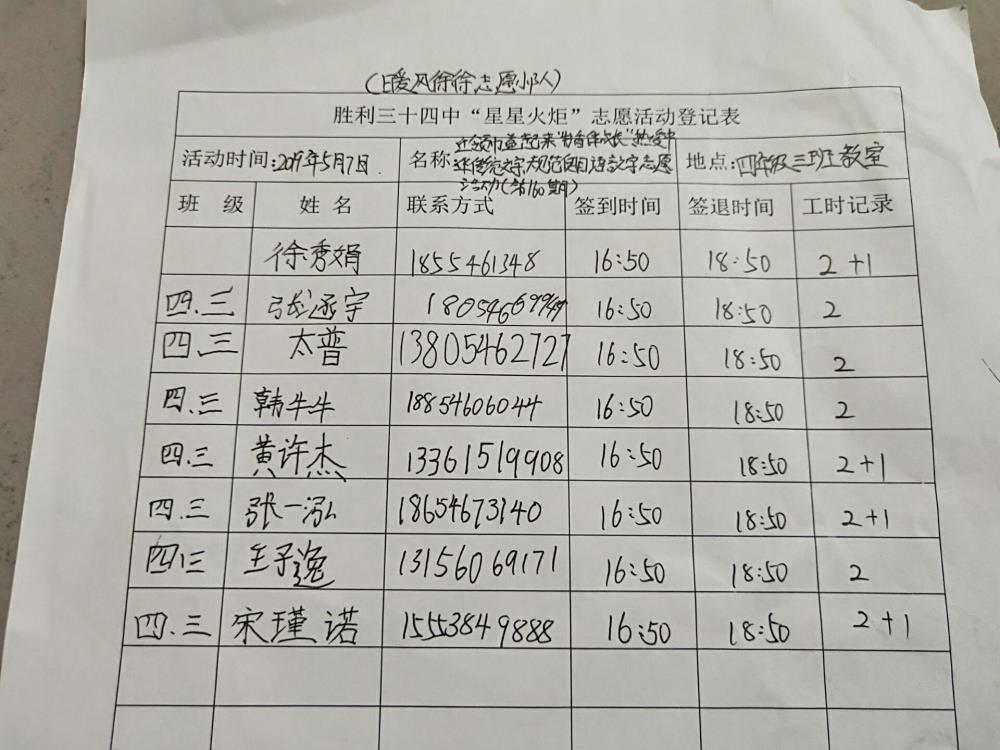 (暖风徐徐志愿小队)
胜利三十四中“星星火炬”志愿活动登记表
活动时间:2019年5月7日 名称: 地点:四年级三班教室
华传统文字,规范
活动(第160期)
班 级 姓 名 联系方式 签到时间 签退时间 工时记录
徐秀娟 1855461348 16:50 18:50 2+1
四.三 张涵宇 16:50 18:50 2
四.三 太普 13805462727 16:50 18:50 2
四.三 韩牛牛 18854606044 16:50 18:50 2
四.三 黄许杰 13361519908 16:50 18:50 2+1
四.三 张一泓 18654673140 16:50 18:50 2+1
四.三 王子逸 13156069171 16:50 18:50 2
四.三 宋瑾诺 15553849888 16:50 18:50 2+1